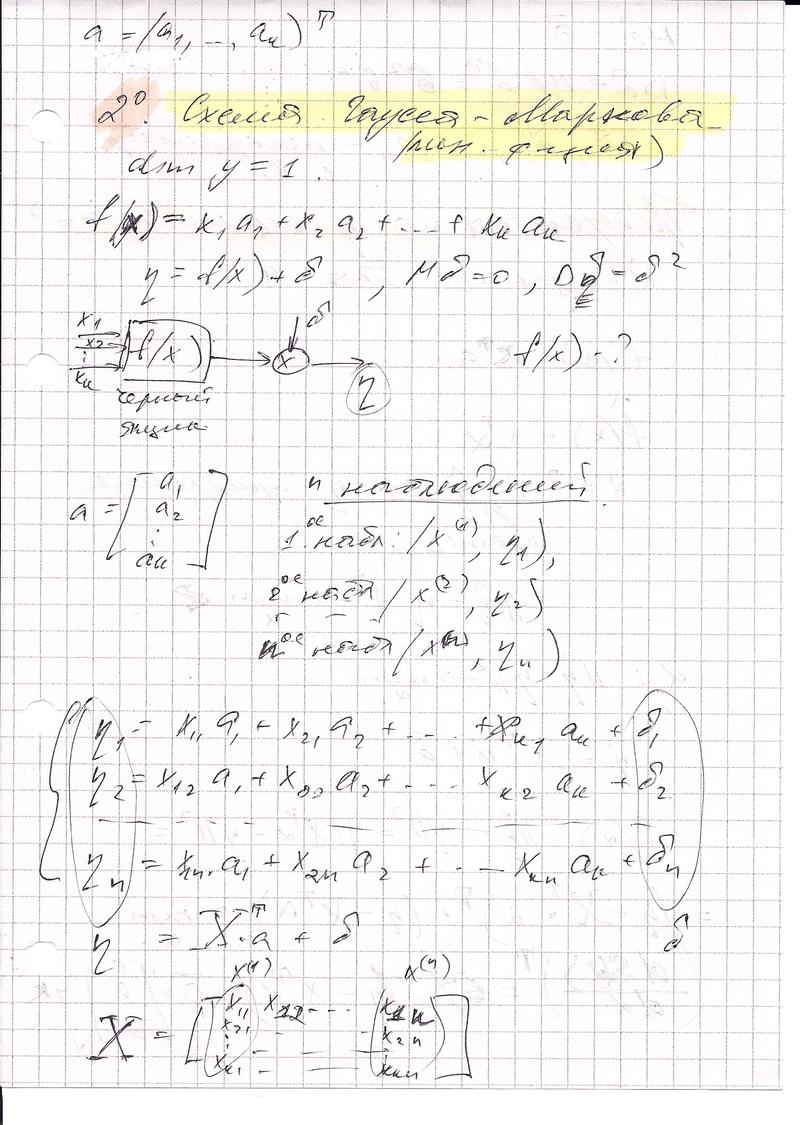 a = (a₁, ..., aₖ)ᵀ
2⁰. Схема Гаусса - Маркова
(лин. функция)
dim y = 1.
f(x) = x₁a₁ + x₂a₂ + ... + xₖaₖ
η = f(x) + δ , Mδ = 0 , Dδ = σ²
x₁
x₂
⋮
xₖ
f(x)
δ
x
η
f(x) - ?
черный
ящик
a = [a₁ a₂ ⋮ aₖ]
n наблюдений
1ᵒᵉ набл: (x⁽¹⁾, η₁),
2ᵒᵉ набл (x⁽²⁾, η₂)
nᵒᵉ набл (x⁽ⁿ⁾, ηₙ)
η₁ = x₁₁a₁ + x₂₁a₂ + ... + xₖ₁aₖ + δ₁
η₂ = x₁₂a₁ + x₂₂a₂ + ... xₖ₂aₖ + δ₂
ηₙ = x₁ₙ·a₁ + x₂ₙa₂ + ... xₖₙaₖ + δₙ
η = Xᵀ·a + δ
δ
x⁽¹⁾ x⁽ⁿ⁾
X = [x₁₁ x₁₂ ... x₁ₙ
x₂₁ - - x₂ₙ
⋮ ⋮
xₖ₁ - - xₖₙ]